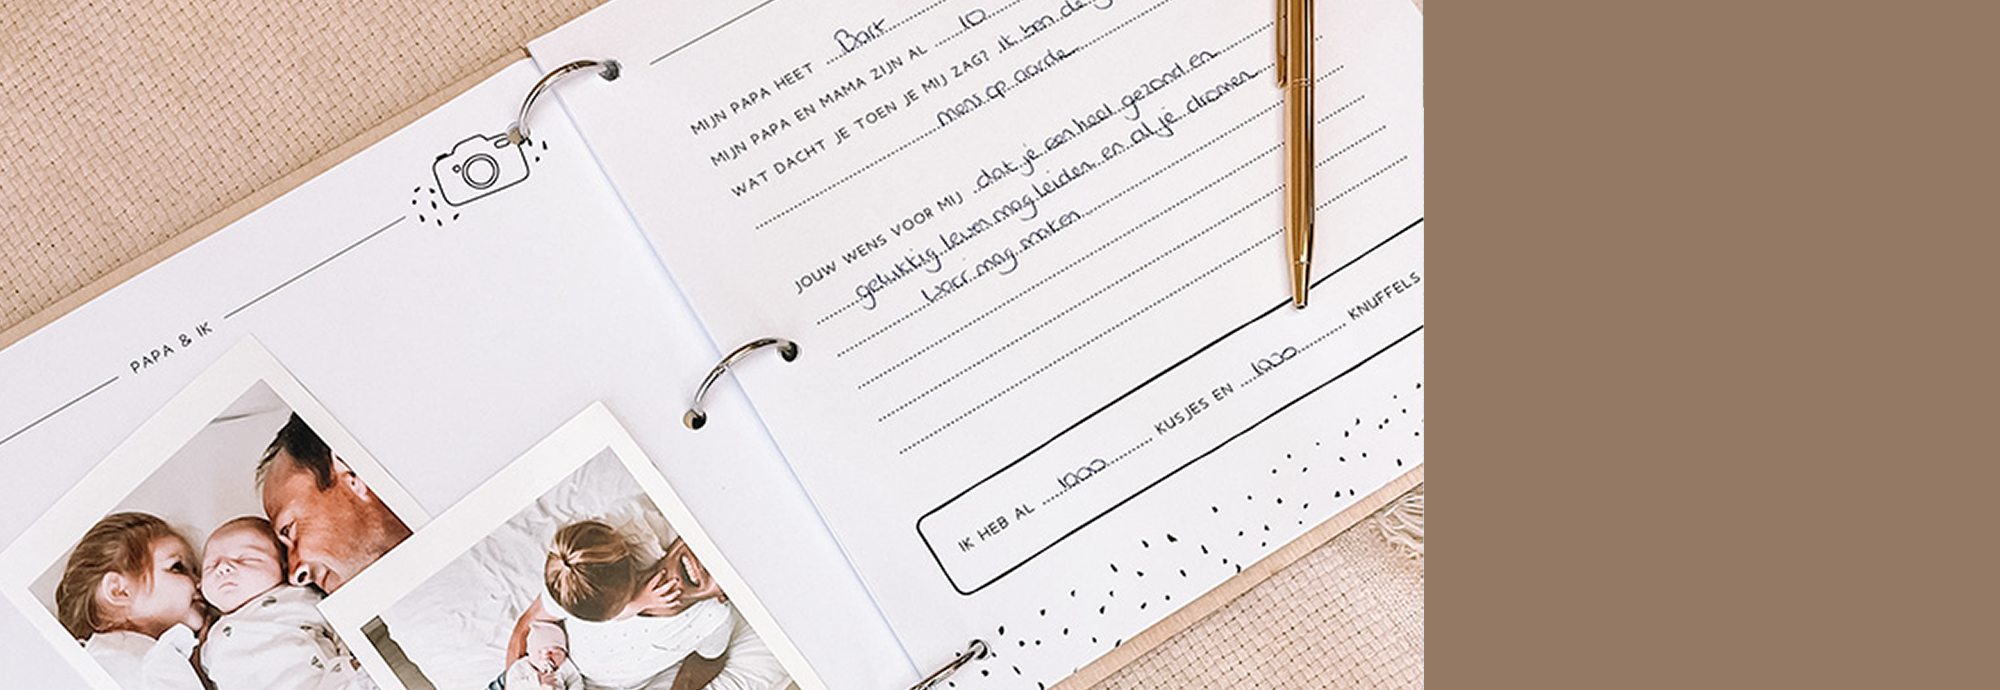 PAPA & IK
MIJN PAPA HEET Bart
MIJN PAPA EN MAMA ZIJN AL 10
WAT DACHT JE TOEN JE MIJ ZAG? Ik ben de
mens op aarde
JOUW WENS VOOR MIJ dat je een heel gezond en
gelukkig leven mag leiden en al je dromen
waar mag maken
IK HEB AL 1000 KUSJES EN 1000 KNUFFELS